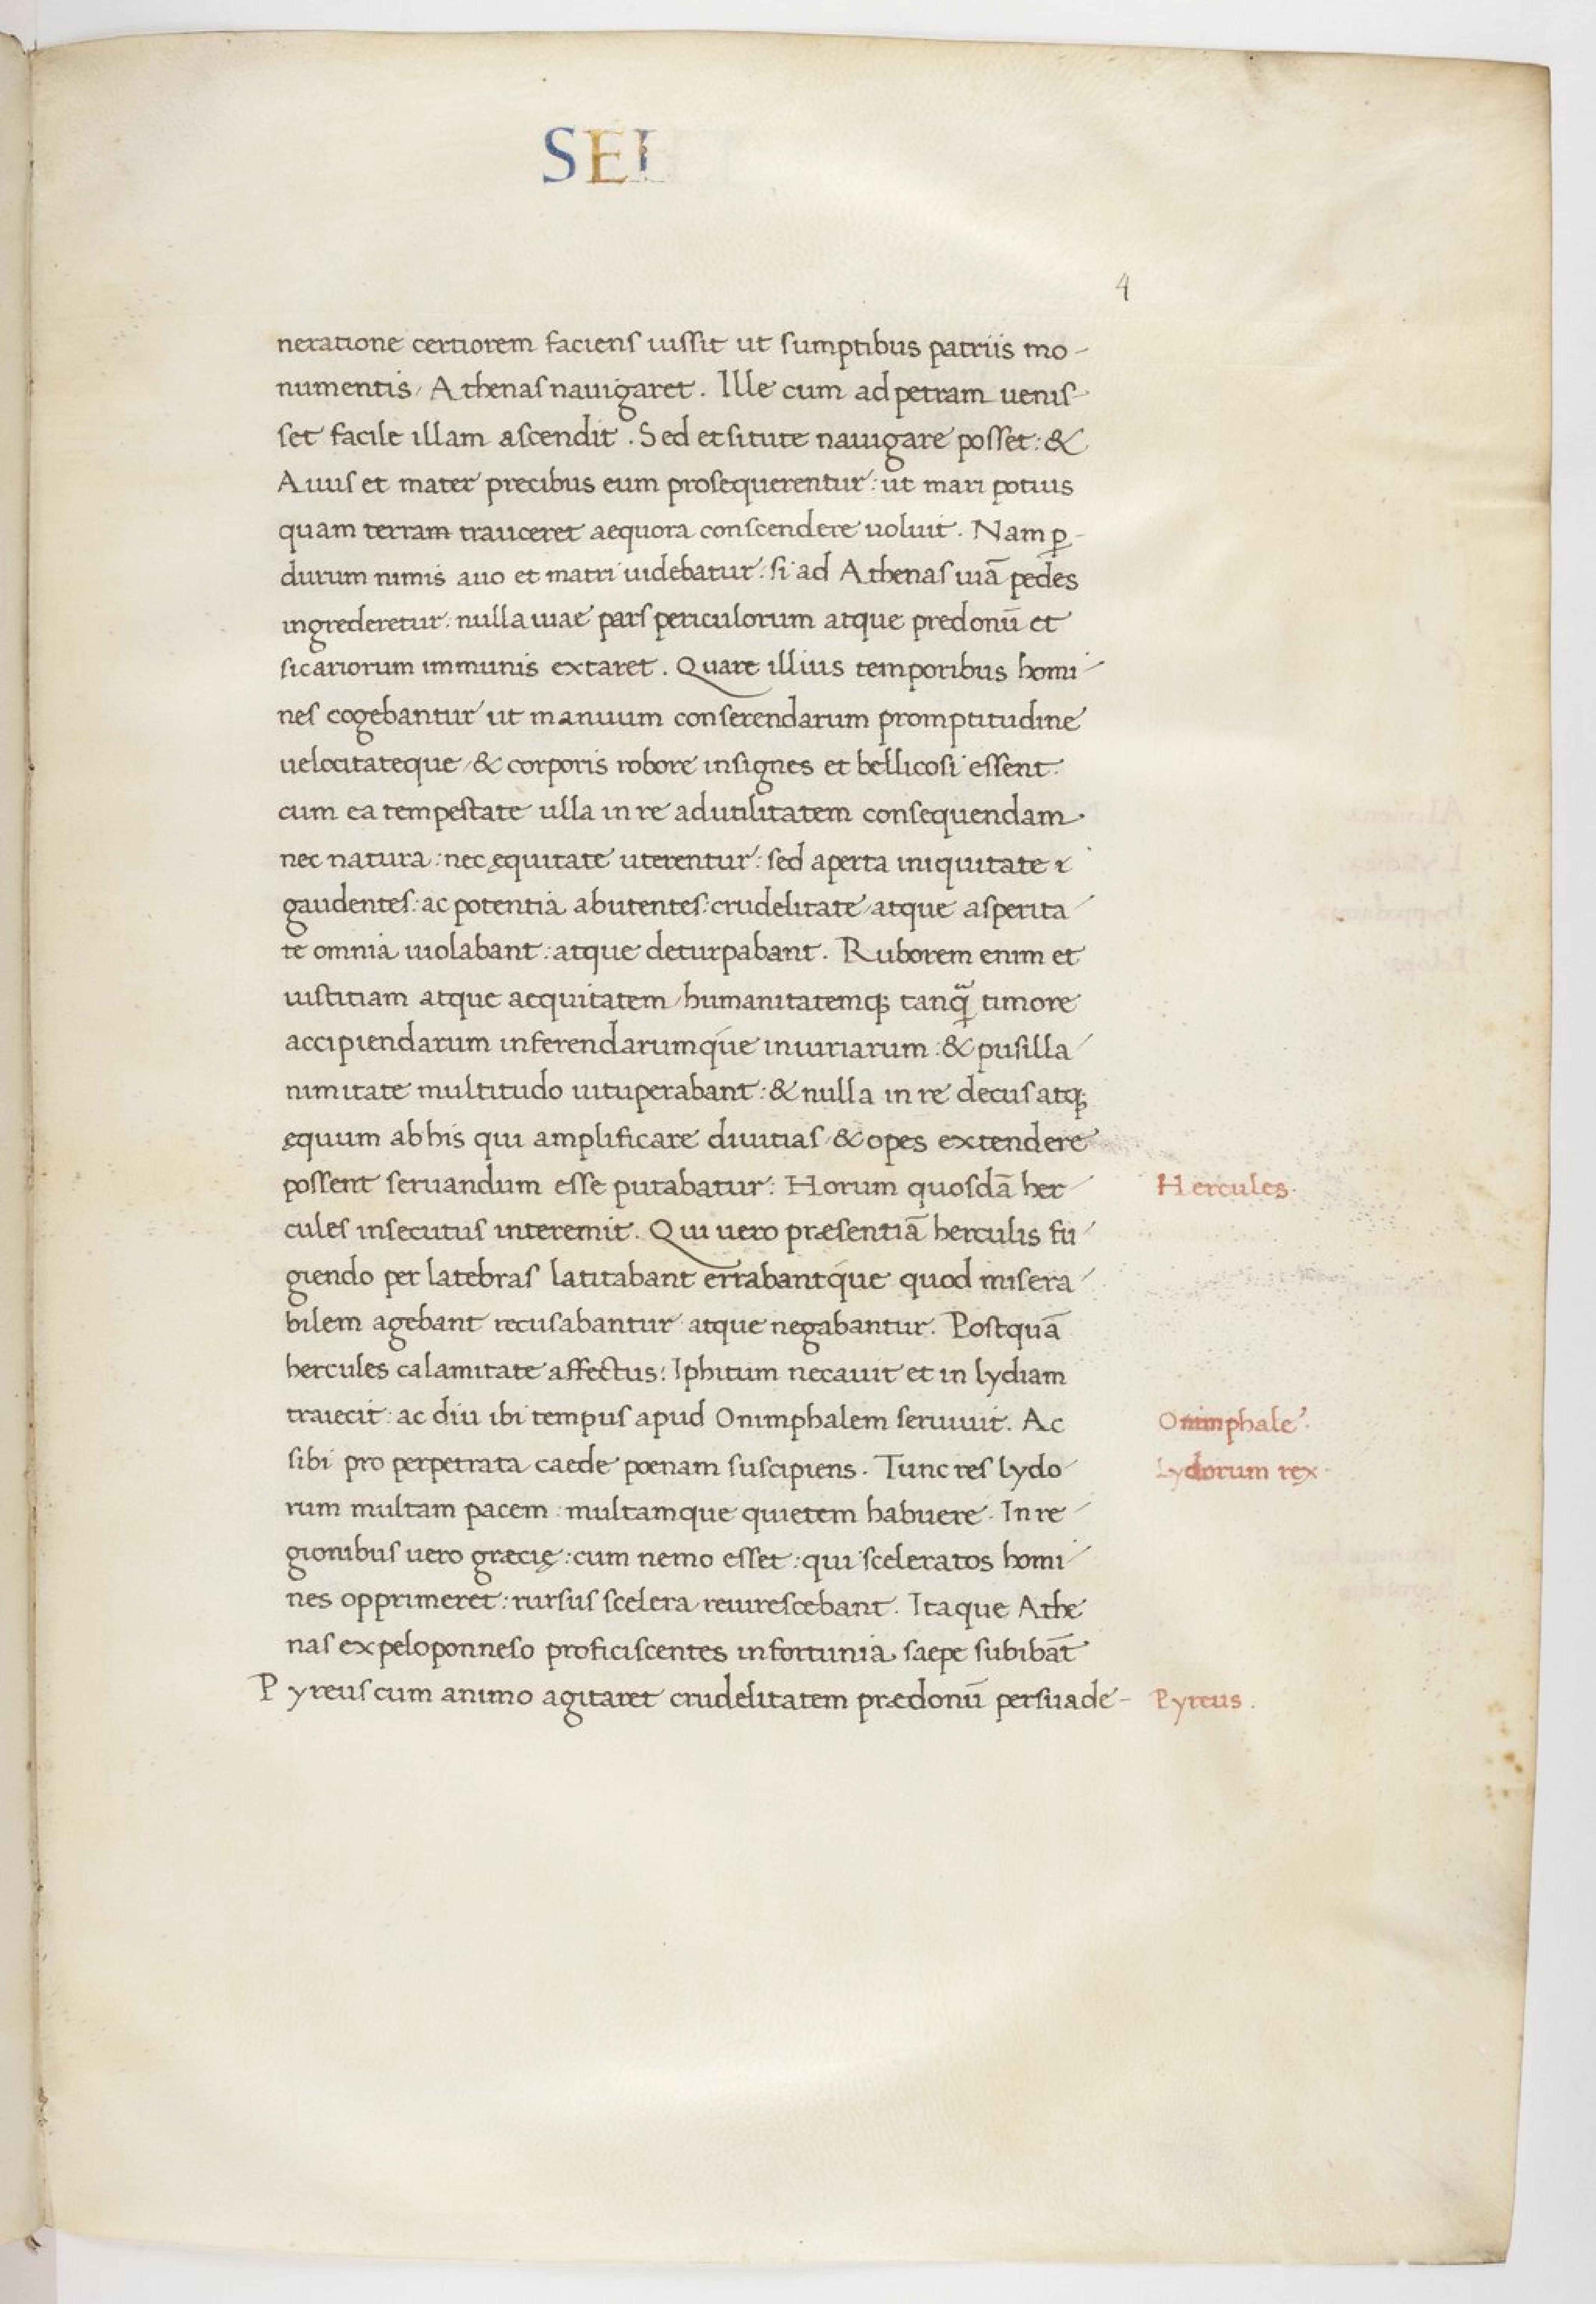 SEI
4
neratione certiorem faciens iussit ut sumptibus patriis mo-
numentis, Athenas nauigaret. Ille cum ad petram uenis-
set facile illam ascendit. Sed etsi tute nauigare posset: &
Auus et mater precibus eum prosequerentur: ut mari potius
quam terram trauceret aequora conscendere uoluit. Nam ꝑ-
durum nimis auo et matri uidebatur: si ad Athenas uiā pedes
ingrederetur: nulla uiae pars periculorum atque predonū et
sicariorum immunis extaret. Quare illius temporibus homi-
nes cogebantur ut manuum conserendarum promptitudine
uelocitateque, & corporis robore insignes et bellicosi essent:
cum ea tempestate ulla in re ad utilitatem consequendam
nec natura: nec ęquitate uterentur: sed aperta iniquitate
gaudentes: ac potentia abutentes: crudelitate, atque asperita-
te omnia uiolabant: atque deturpabant. Ruborem enim et
iustitiam atque aequitatem, humanitatemq; tanq̄ timore
accipiendarum inferendarumque iniuriarum: & pusilla-
nimitate multitudo uituperabant: & nulla in re decus atq;
ęquum ab his qui amplificare diuitias, & opes extendere
possent seruandum esse putabatur: Horum quosdā her-
Hercules.
cules insecutus interemit. Qui uero præsentiā herculis fu-
giendo per latebras latitabant errabantque quod misera-
bilem agebant recusabantur atque negabantur. Postquā
hercules calamitate affectus: Iphitum necauit et in lydiam
traiecit: ac diu ibi tempus apud Onimphalem seruiuit. Ac
Onimphale.
sibi pro perpetrata caede poenam suscipiens. Tunc res lydo-
Lydorum rex.
rum multam pacem: multamque quietem habuere. In re-
gionibus uero græcię: cum nemo esset: qui sceleratos homi-
nes opprimeret: rursus scelera reuirescebant. Itaque Athe
nas ex peloponneso proficiscentes infortunia saepe subibāt
Pyreus cum animo agitaret crudelitatem prædonū persuade-
Pyreus.